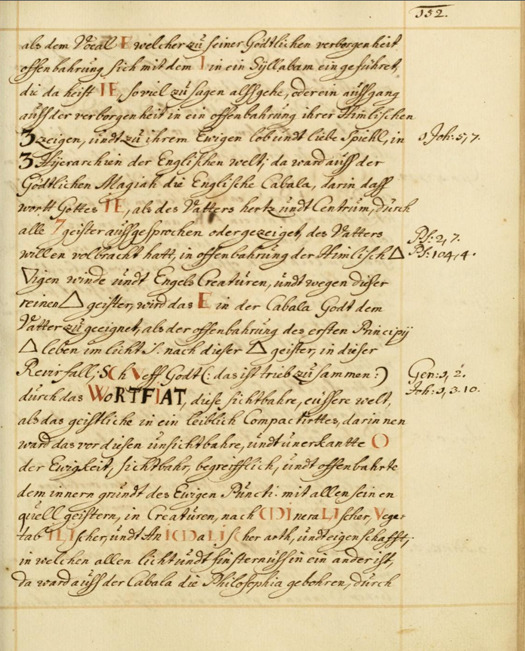 152.
als dem Vocal E welcher zu seiner Göttlichen verborgenheit
offenbahrung sich mit dem I in ein Syllabam eingeführet,
die da heist IE, soviel zu sagen alss gehe, oder ein aussgang
auss der verborgenheit in ein offenbahrung ihrer Himlischen
3 zeigen, undt zu ihrem Ewigen lob undt liebe Spiehl, in
1 Joh: 5, 7.
3 Hijerarchien der Englischen welt; da ward auss der
Göttlichen Magiah die Englische Cabala, darin dass
wortt Gottes IE, als des Vatters hertz undt Centrum, durch
alle 7 geister aussgesprochen oder gezeiget, des Vatters
Ps: 2, 7.
willen volbracht hatt, in offenbahrung der Himlisch △
Ps: 104, 4.
igen winde undt Engels Creaturen, undt wegen dieser
reinen △ geister, wird das E in der Cabala Godt dem
Vatter zu geeignet, als der offenbahrung des ersten Principij
△ leben im licht nach dieser △ geister, in dieser
Revir fall, Sch V off Godt (: das ist trieb zusammen :)
Gen: 1, 2.
durch das WORT FIAT, diese sichtbahre, eussere welt,
Joh: 1, 3. 10.
als das geistliche in ein leiblich Compactirttes, darinnen
ward das vor diesen unsichtbahre, undt unerkantte O
der Ewigkeit, sichtbahr, begreifflich, undt offenbahrte
dem innern grundt des Ewigen Puncti mit allen seinen
quell geistern, in Creaturen, nach MineraLIscher Vege-
tabILIscher, undt AnIMaLIscher arth, undt eigenschafft;
in welchen allen licht undt finsternuss in ein ander ist,
da ward auss der Cabala die Philosophia gebohren, durch